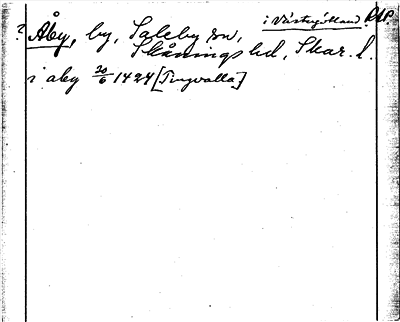 i Västergötland RAP
? Åby, by, Saleby sn,
Skånings hd, Skar. l.
i aby 20/6 1424 [Tingvalla]